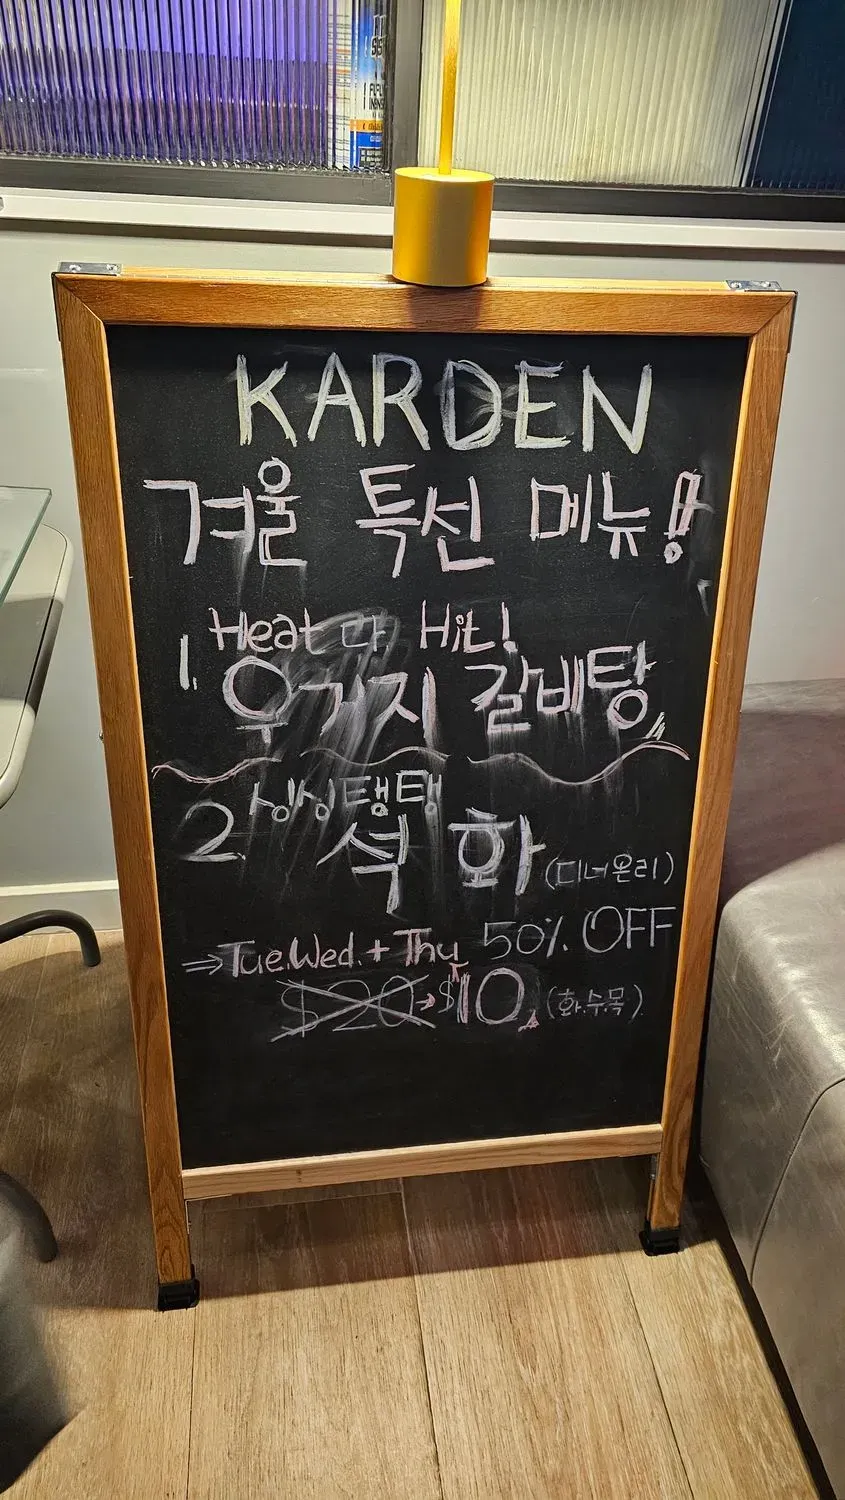 KARDEN
겨울 특선 메뉴!
Heat다 Hit!
1. 우거지 갈비탕
싱싱탱탱
2. 석화 (디너온리)
⇒ Tue.Wed.+Thu 50% OFF
$20 → $10 (화.수.목)